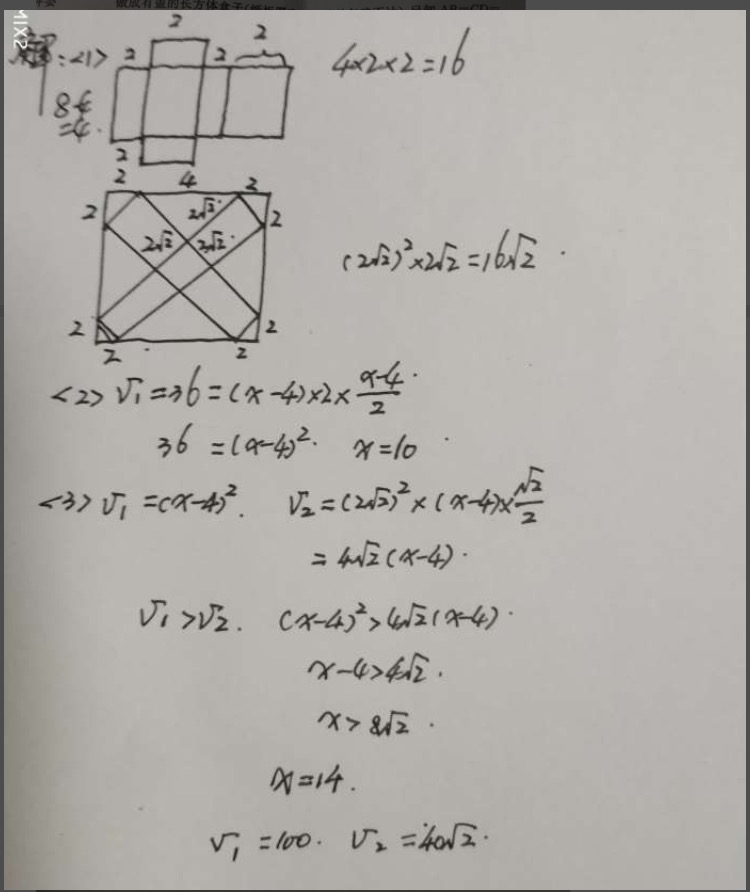 做成有盖的长方体盒子
MIX2
解:<1>
2
2
2
2
8-4
=4.
2
4×2×2=16
2 4 2
2 2√2 2
2√2 2√2
(2√2)²×2√2=16√2
2 2
2 2
<2> V₁=36=(x-4)×2×(x-4)/2
36=(x-4)². x=10
<3> V₁=(x-4)². V₂=(2√2)²×(x-4)×√2/2
=4√2(x-4).
V₁>V₂. (x-4)²>4√2(x-4).
x-4>4√2.
x>8√2.
x=14.
V₁=100. V₂=40√2.